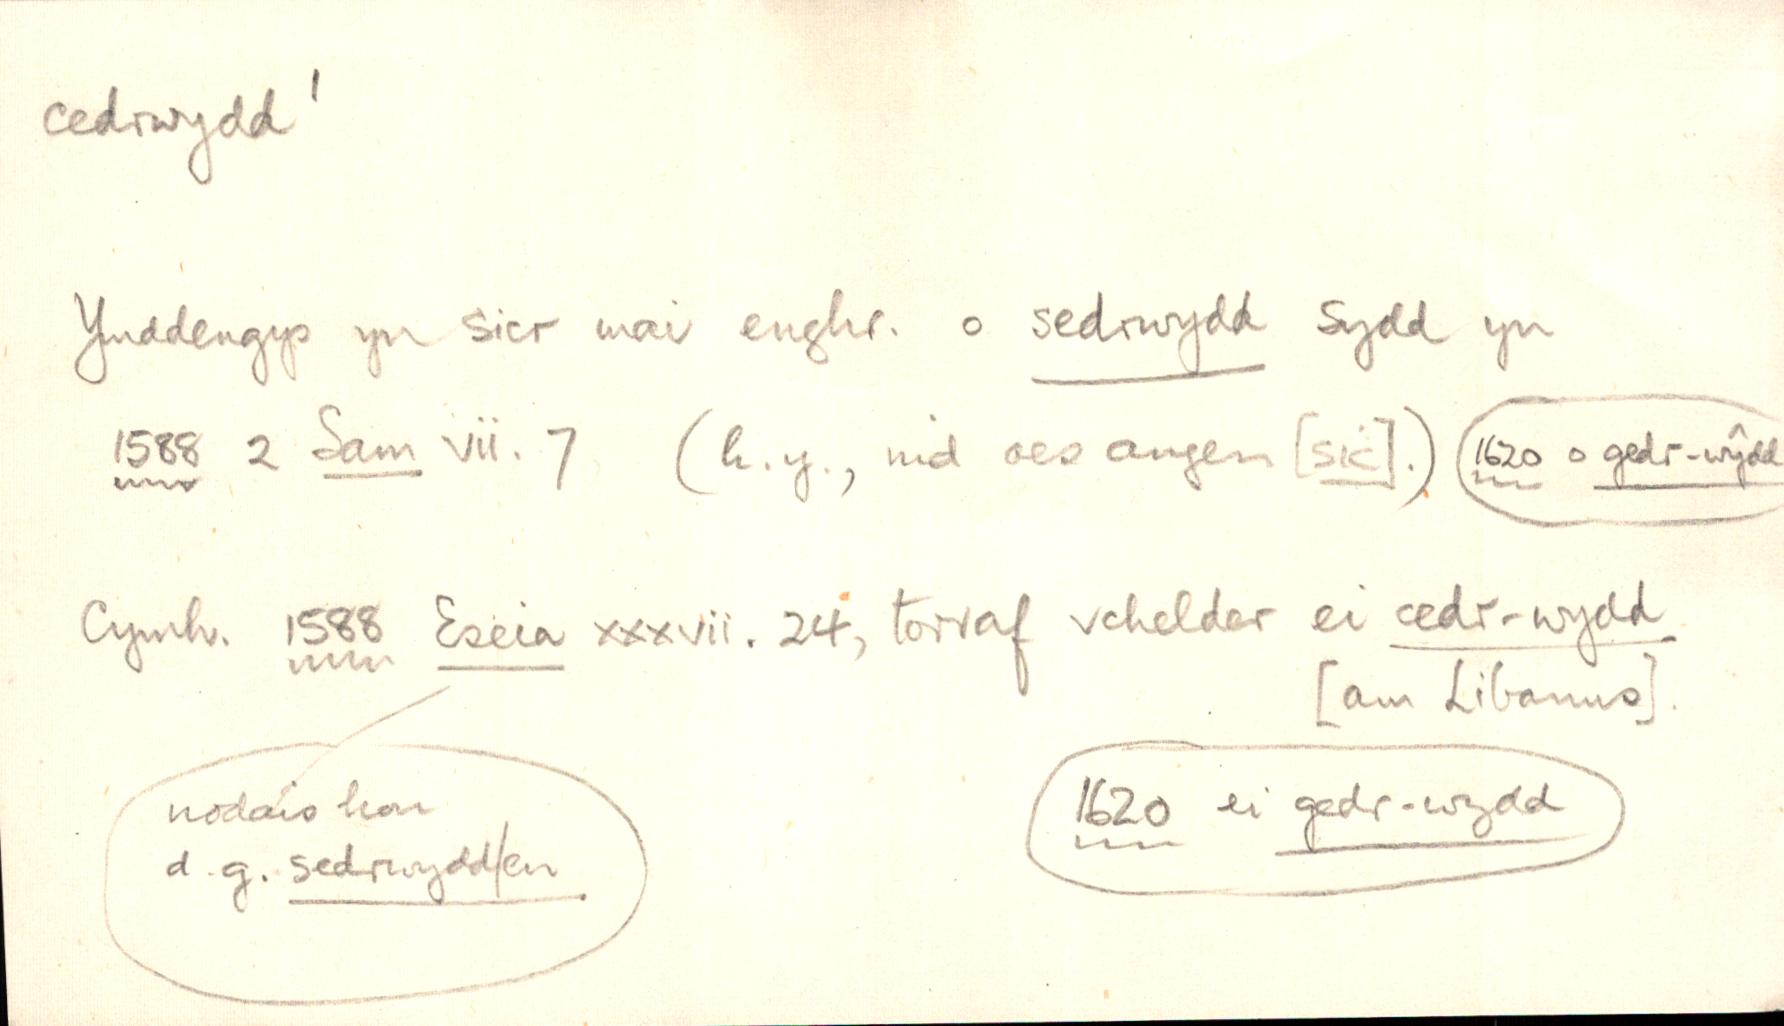 cedrwydd¹
Ymddengys yn sicr mai enghr. o sedrwydd sydd yn
1588 2 Sam vii. 7 (h.y., nid oes angen [sic].) 1620 o gedr-wŷdd
Cymh. 1588 Eseia xxxvii. 24, torraf vchelder ei cedr-wydd
[am Libanus].
nodais hon
d.g. sedrwydd/en
1620 ei gedr-wydd